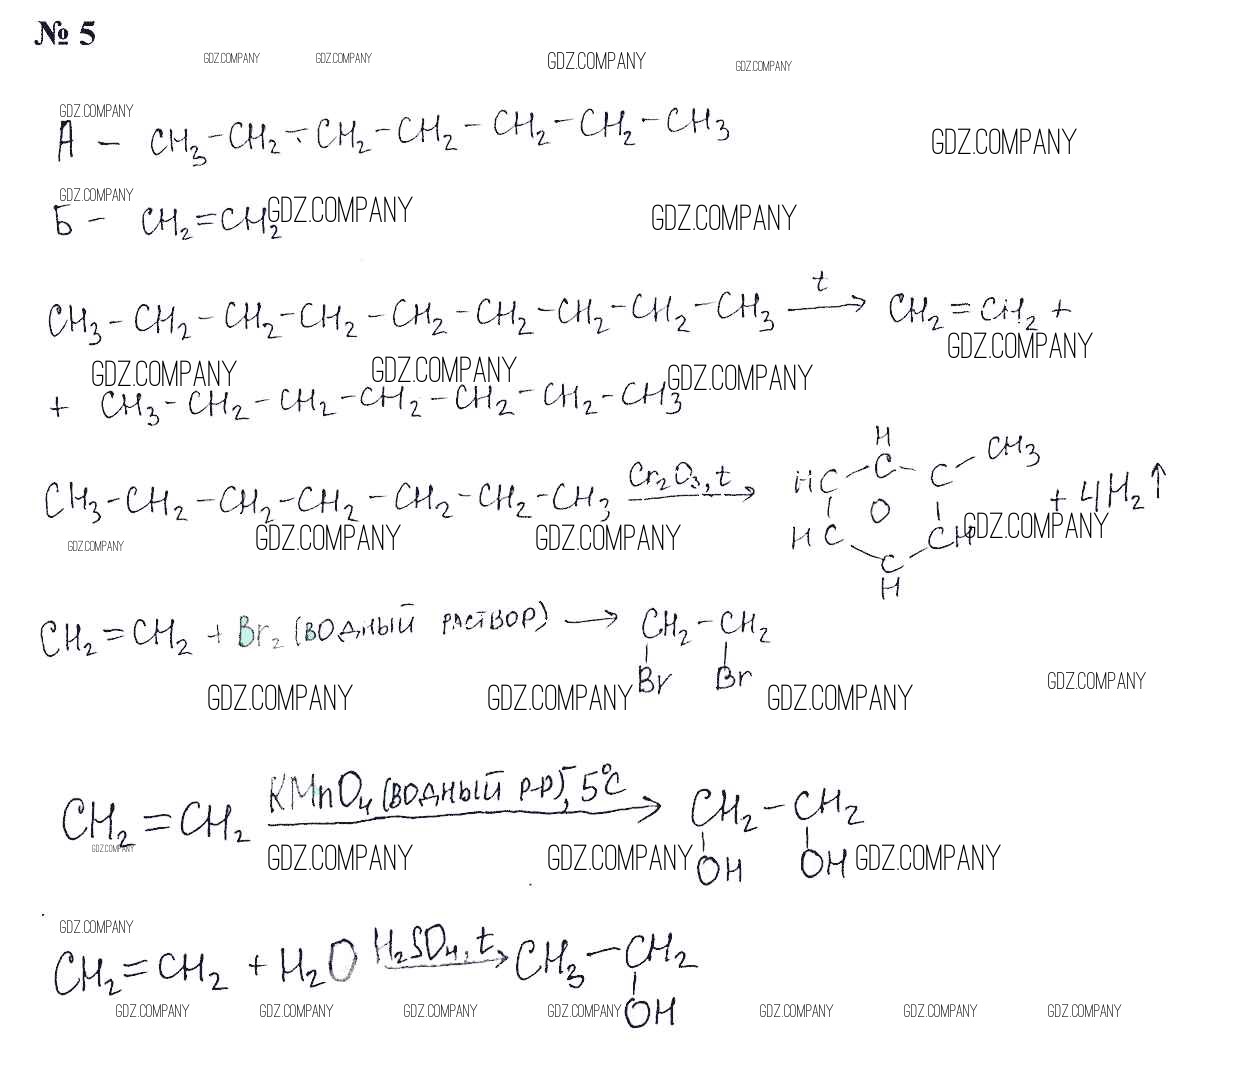 № 5
GDZ.COMPANY GDZ.COMPANY GDZ.COMPANY GDZ.COMPANY
GDZ.COMPANY
А - CH3-CH2-CH2-CH2-CH2-CH2-CH3 GDZ.COMPANY
GDZ.COMPANY
Б - CH2=CH2 GDZ.COMPANY GDZ.COMPANY
CH3-CH2-CH2-CH2-CH2-CH2-CH2-CH2-CH3 t→ CH2=CH2 +
GDZ.COMPANY GDZ.COMPANY GDZ.COMPANY GDZ.COMPANY
+ CH3-CH2-CH2-CH2-CH2-CH2-CH3
H
CH3
HC C C
CH3-CH2-CH2-CH2-CH2-CH2-CH3 Cr2O3, t→ O + 4H2↑
GDZ.COMPANY GDZ.COMPANY GDZ.COMPANY HC CH GDZ.COMPANY
C
H
CH2=CH2 + Br2 (водный раствор) → CH2-CH2
Br Br
GDZ.COMPANY GDZ.COMPANY GDZ.COMPANY GDZ.COMPANY
CH2=CH2 KMnO4 (водный р-р), 5°C → CH2-CH2
GDZ.COMPANY GDZ.COMPANY GDZ.COMPANY OH OH GDZ.COMPANY
GDZ.COMPANY
CH2=CH2 + H2O H2SO4, t→ CH3-CH2
OH
GDZ.COMPANY GDZ.COMPANY GDZ.COMPANY GDZ.COMPANY GDZ.COMPANY GDZ.COMPANY GDZ.COMPANY